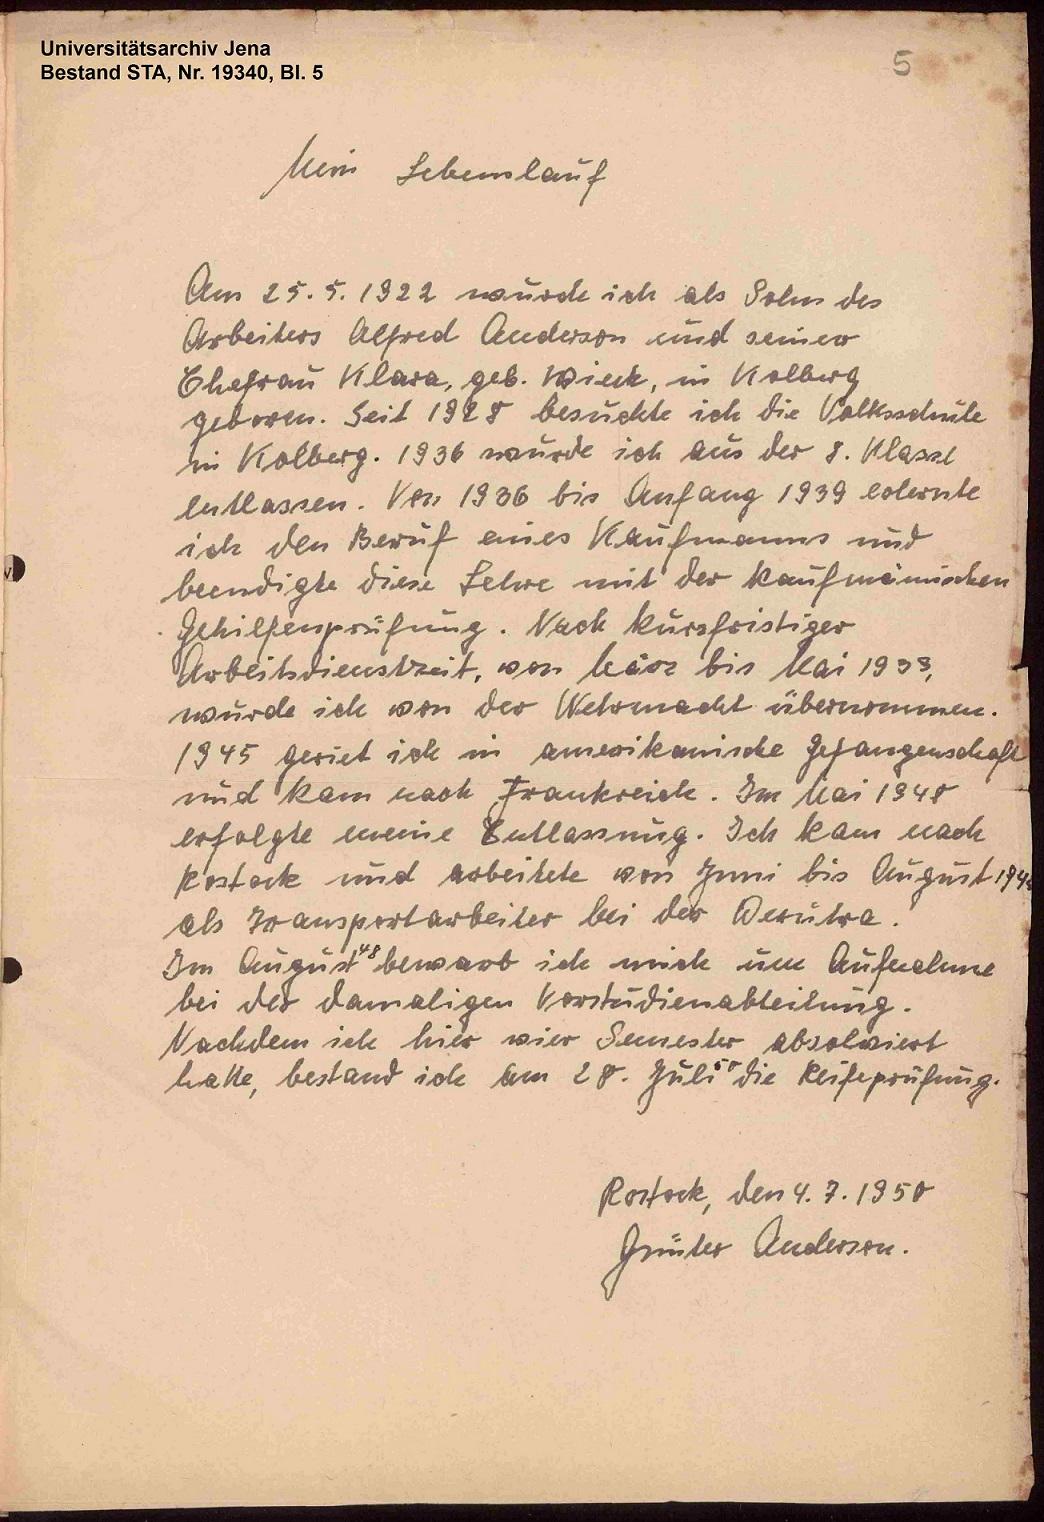 Universitätsarchiv Jena
Bestand STA, Nr. 19340, Bl. 5
5
Mein Lebenslauf
Am 25.5.1922 wurde ich als Sohn des
Arbeiters Alfred Anderson und seiner
Ehefrau Klara, geb. Wieck, in Kolberg
geboren. Seit 1928 besuchte ich die Volksschule
in Kolberg. 1936 wurde ich aus der 8. Klasse
entlassen. Von 1936 bis Anfang 1939 erlernte
ich den Beruf eines Kaufmanns und
beendigte diese Lehre mit der kaufmännischen
Gehilfenprüfung. Nach kurzfristiger
Arbeitsdienstzeit, von März bis Mai 1933,
wurde ich von der Wehrmacht übernommen.
1945 geriet ich in amerikanische Gefangenschaft
und kam nach Frankreich. Im Mai 1948
erfolgte meine Entlassung. Ich kam nach
Rostock und arbeitete von Juni bis August
als Transportarbeiter bei der Derutra.
Im August 48 bewarb ich mich um Aufnahme
bei der damaligen Vorstudienabteilung.
Nachdem ich hier vier Semester absolviert
hatte, bestand ich am 28. Juli 50 die Reifeprüfung.
Rostock, den 4.7.1950
Günter Anderson.